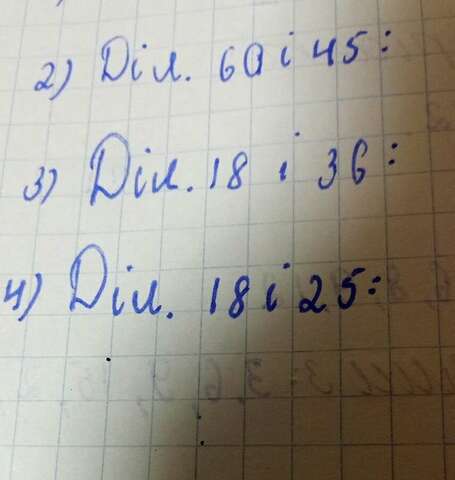 2) Діл. 60 і 45:
3) Діл. 18 і 36:
4) Діл. 18 і 25: